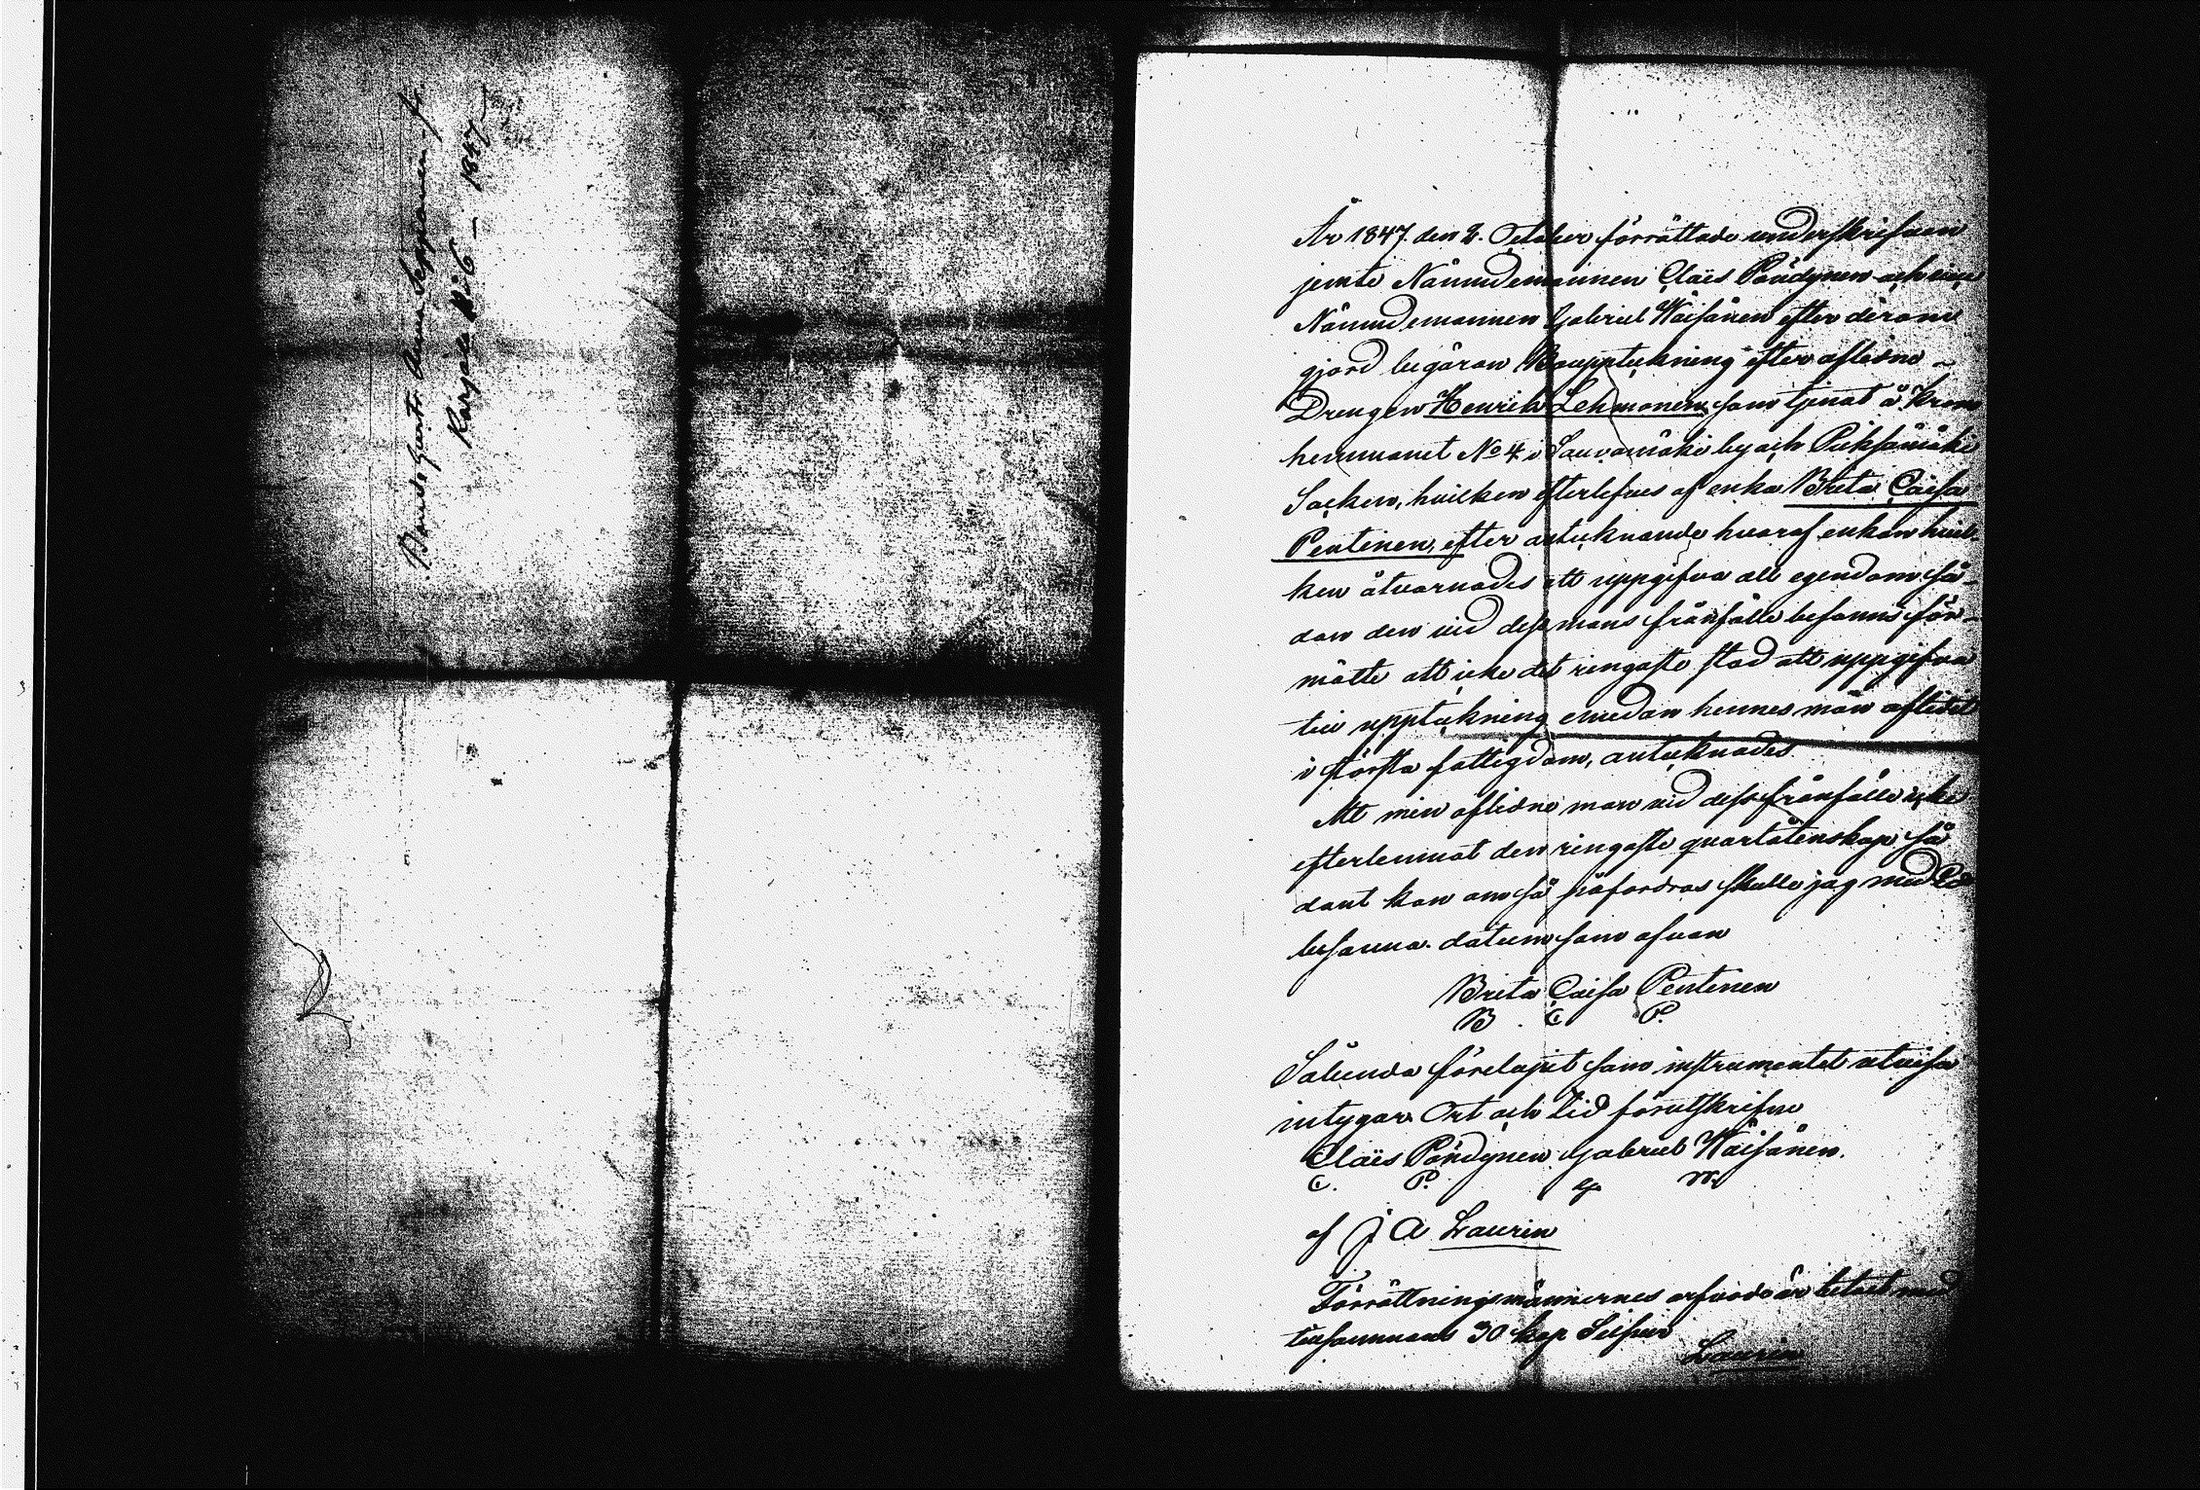 Bonde hustr. Anna Seppänen f.
Karjala No 6 – 1847
År 1847 den 2. October förrättade underskrifven
jemte Nämndemannen Claës Pöndynen och
Nämndemannen Gabriel Wäisänen efter derom
gjord begäran Bouppteckning efter aflidne
Drengen Henrik Lehmonen som tjenat å Krono
hemmanet No 4 i Sauvamäki by och Pieksämäki
Socken, hvilken efterlefves af enka Brita Caisa
Pentinen, efter antecknande hvaraf enkan hvil-
ken åtvarnades att uppgifva all egendom så-
dan den vid dess mans frånfälle befanns för-
mälte att icke det ringaste stod att uppgifva
till uppteckning emedan hennes man aflidit
i största fattigdom, antecknades.
Att min aflidne man vid dess frånfälle icke
efterlemnat den ringaste qvarlåtenskap så
dant kan om så påfordras skulle jag med Ed
besanna. datum som ofvan
Brita Caisa Pentinen
B. C P.
Sålunda förelupit som instrumentet utvisa
intygar. Ort och tid förutskrifne
Claës Pöndynen Gabriel Wäisänen.
C. P. G W.
af J. A Laurin
Förrättningsmännernes arfvode är betalt med
tillsammans 30 kop Silfver
Laurin